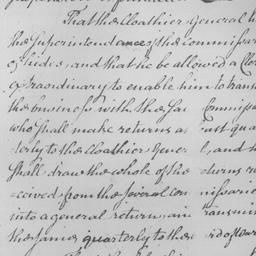 That the Cloathier General h
the Superintendance of the Commissar
of hides, and that he be allowed a Clo
extraordinary to enable him to trans
the business with the Sa Commissar
who shall make returns a ust qua
=terly to the Cloathier Gene l, and h
shall draw the whole of the returns re
=ceived from the several Com issarie
into a general return, an transmi
the same quarterly to the rd of war